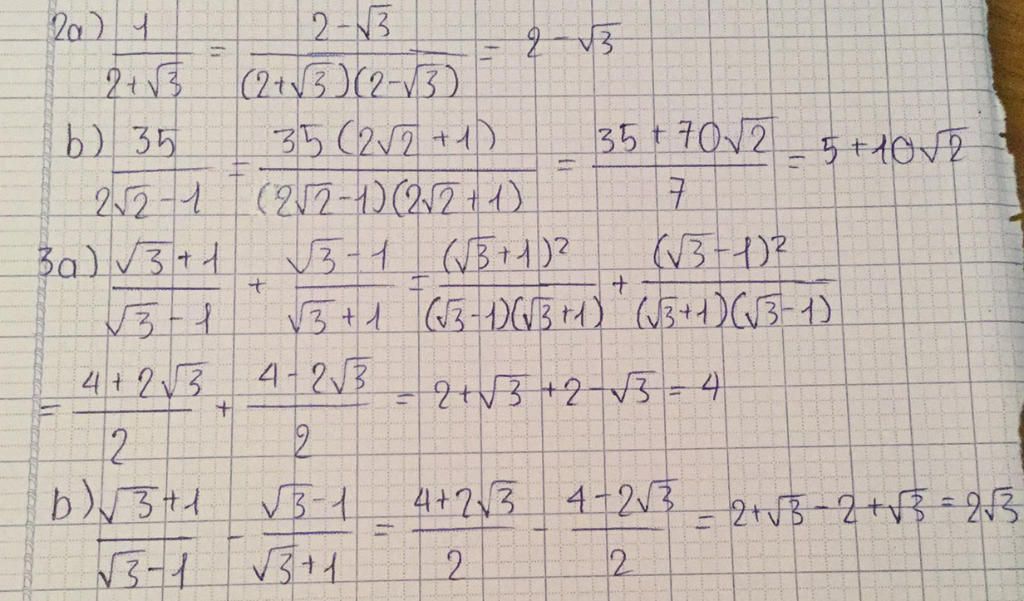 2a) 1/(2+√3) = (2-√3)/((2+√3)(2-√3)) = 2-√3
b) 35/(2√2-1) = 35(2√2+1)/((2√2-1)(2√2+1)) = (35+70√2)/7 = 5+10√2
3a) (√3+1)/(√3-1) + (√3-1)/(√3+1) = (√3+1)²/((√3-1)(√3+1)) + (√3-1)²/((√3+1)(√3-1))
= (4+2√3)/2 + (4-2√3)/2 = 2+√3+2-√3 = 4
b) (√3+1)/(√3-1) - (√3-1)/(√3+1) = (4+2√3)/2 - (4-2√3)/2 = 2+√3-2+√3 = 2√3